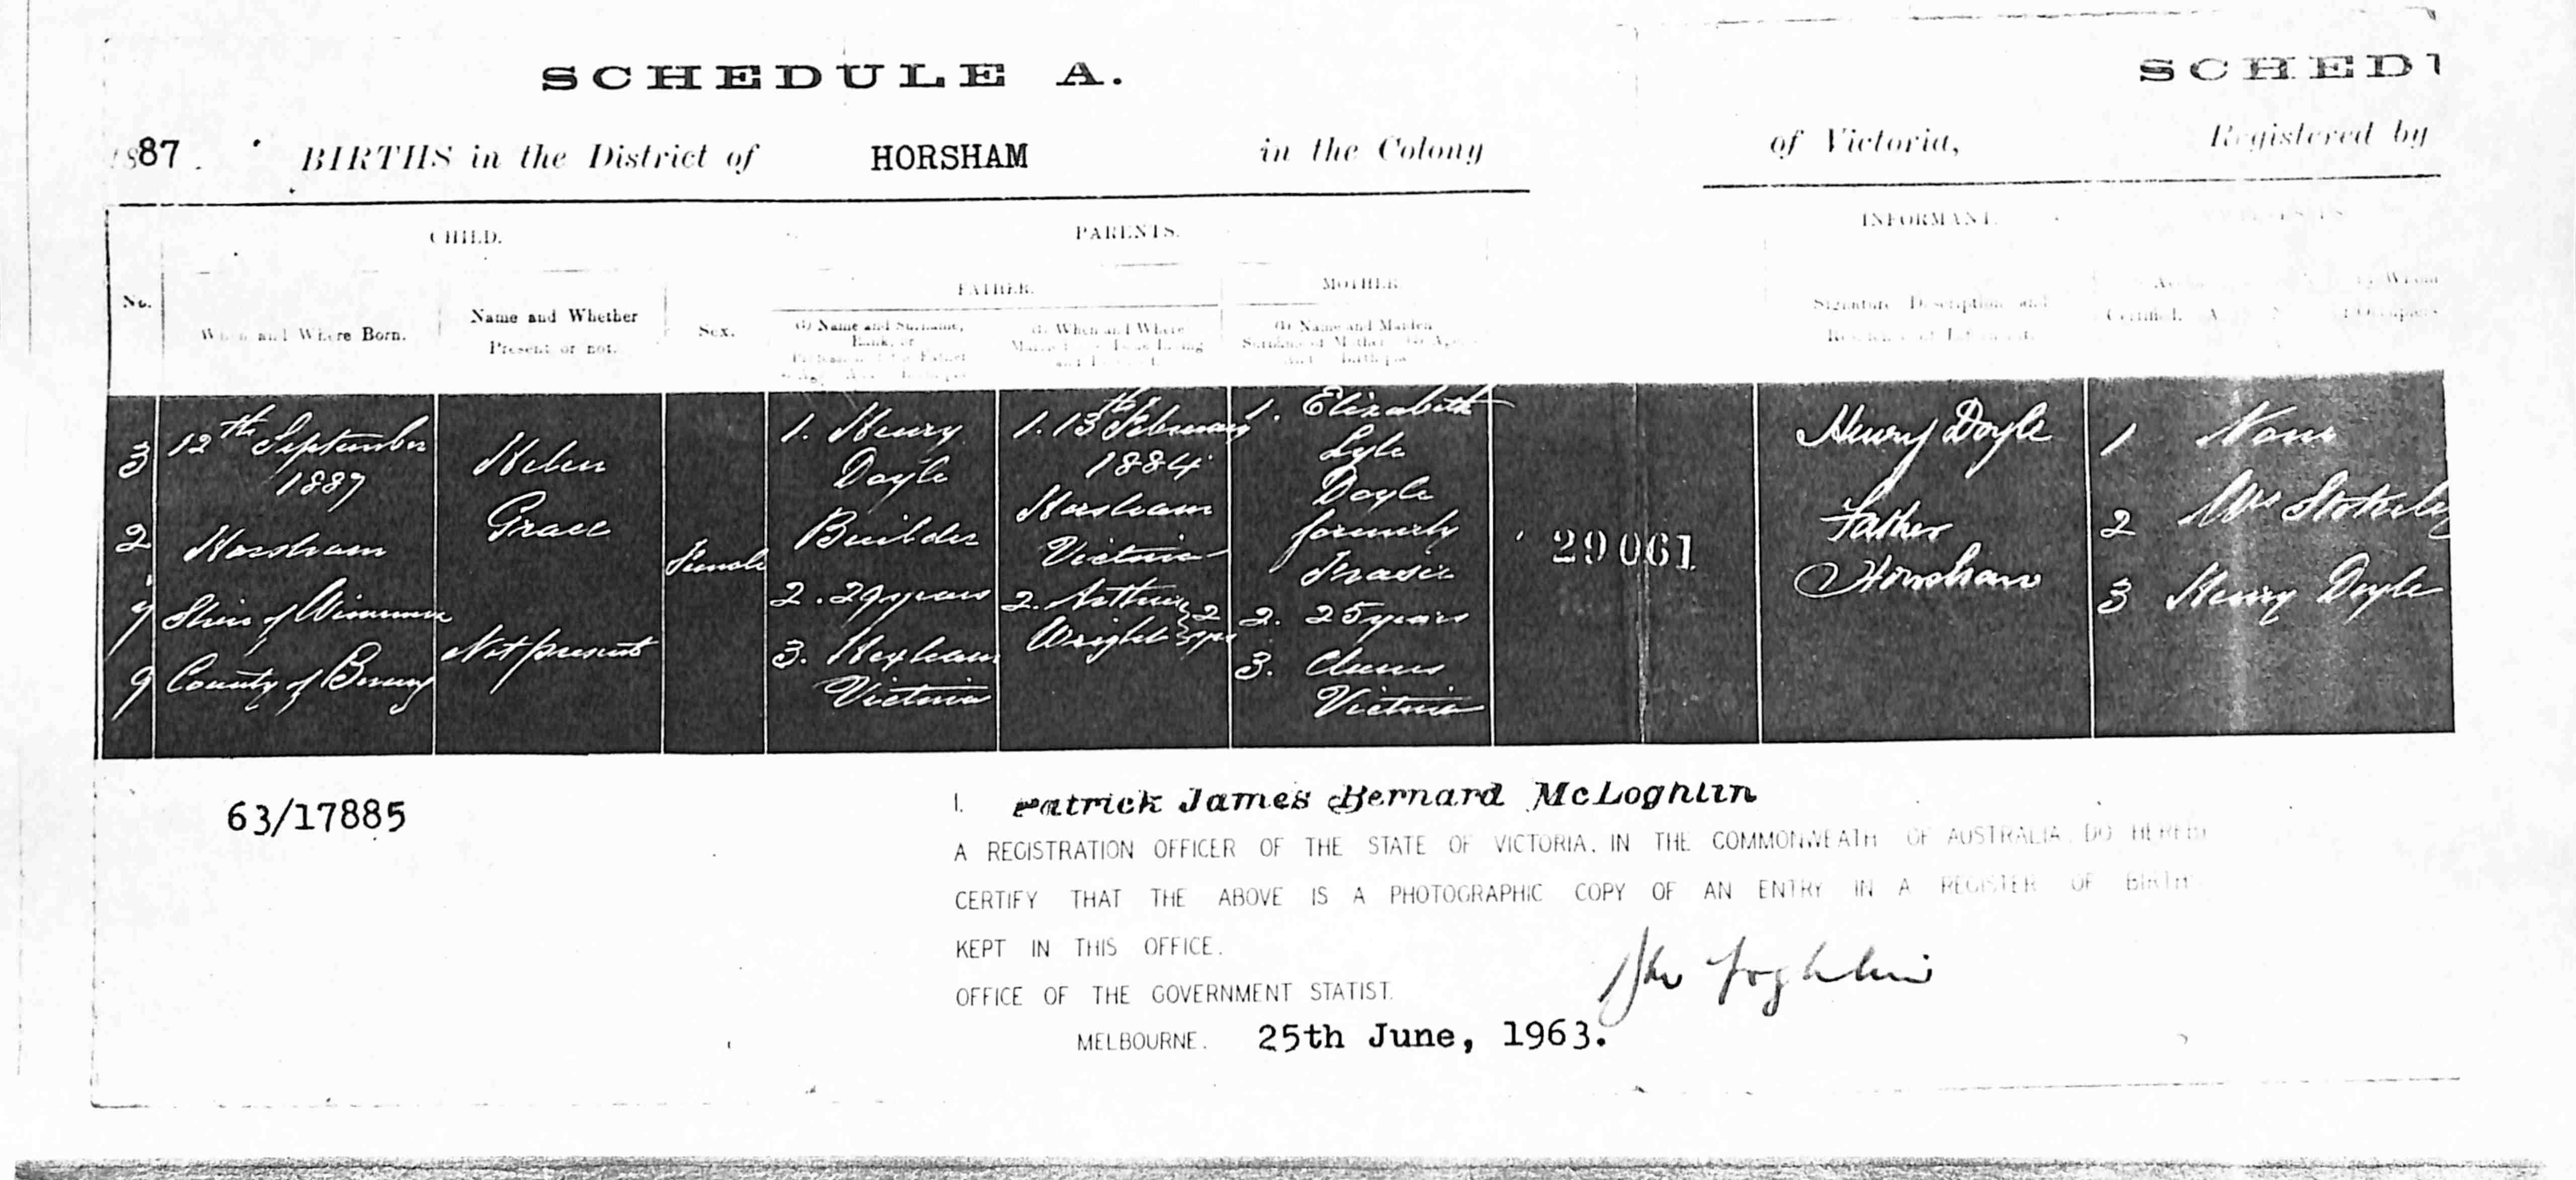 SCHEDULE A.
SCHEDU
1887. BIRTHS in the District of HORSHAM in the Colony of Victoria, Registered by
CHILD.
PARENTS.
INFORMANT.
FATHER.
MOTHER.
No.
When and Where Born.
Name and Whether
Present or not.
Sex.
(1) Name and Surname,
Rank, or
(1) When and Where
(1) Name and Maiden
Surname of Mother
Signature, Description, and
Residence of Informant.
Certified.
3
2
7
9
12th September
1887
Horsham
Shire of Wimmera
County of Borung
Helen
Grace
Not present
Female
1. Henry
Doyle
Builder
2. 29 years
3. Hexham
Victoria
1. 13th February
1884
Horsham
Victoria
2. Arthur
Wright } 2 yrs
1. Elizabeth
Lyle
Doyle
formerly
Frasie
2. 25 years
3. Clunes
Victoria
29061
Henry Doyle
Father
Horsham
1 None
2 Mrs
3 Henry Doyle
63/17885
I. Patrick James Bernard McLoghlin
A REGISTRATION OFFICER OF THE STATE OF VICTORIA, IN THE COMMONWEATH OF AUSTRALIA DO HEREBY
CERTIFY THAT THE ABOVE IS A PHOTOGRAPHIC COPY OF AN ENTRY IN A REGISTER OF BIRTH
KEPT IN THIS OFFICE.
OFFICE OF THE GOVERNMENT STATIST.
MELBOURNE. 25th June, 1963.